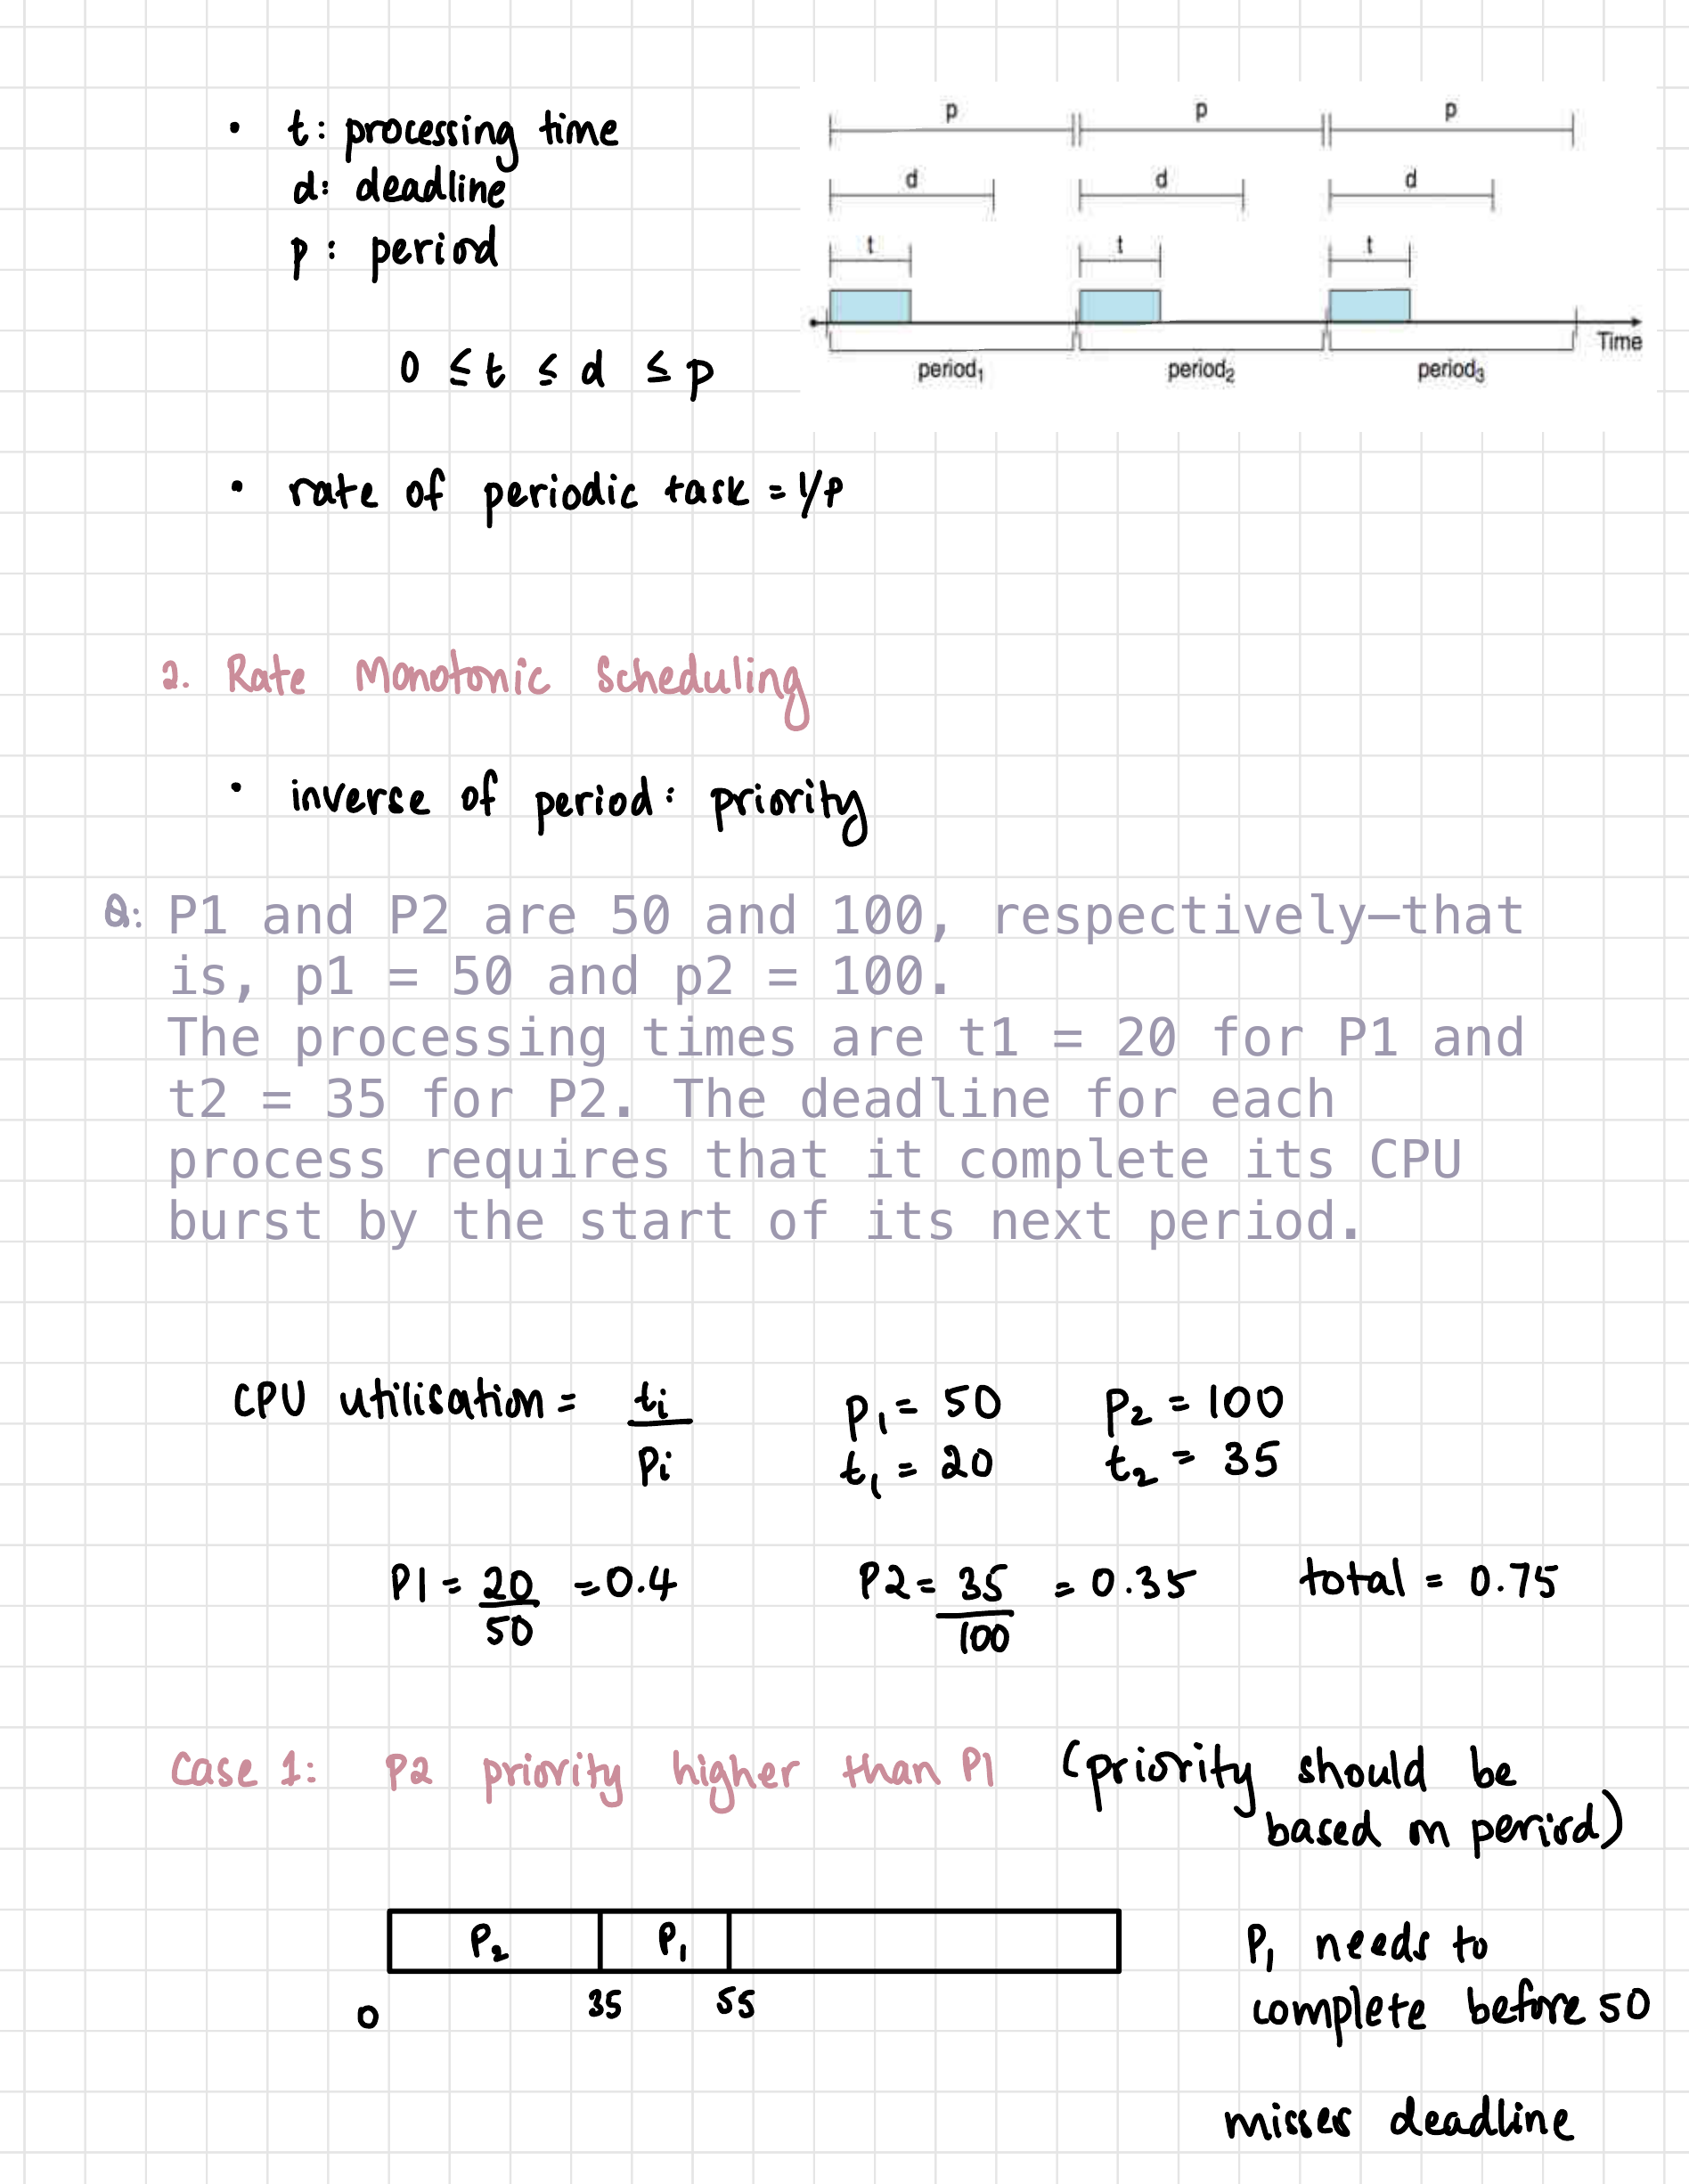 • t: processing time
d: deadline
p: period
0 ≤ t ≤ d ≤ p
p p p
d d d
t t t
Time
period₁ period₂ period₃
• rate of periodic task = 1/p
2. Rate Monotonic Scheduling
• inverse of period: priority
Q: P1 and P2 are 50 and 100, respectively—that
is, p1 = 50 and p2 = 100.
The processing times are t1 = 20 for P1 and
t2 = 35 for P2. The deadline for each
process requires that it complete its CPU
burst by the start of its next period.
CPU utilisation = ti/Pi P₁ = 50 P₂ = 100
t₁ = 20 t₂ = 35
P1 = 20/50 = 0.4 P2 = 35/100 = 0.35 total = 0.75
Case 1: P2 priority higher than P1 (priority should be
based on period)
P₂ P₁
0 35 55
P₁ needs to
complete before 50
misses deadline